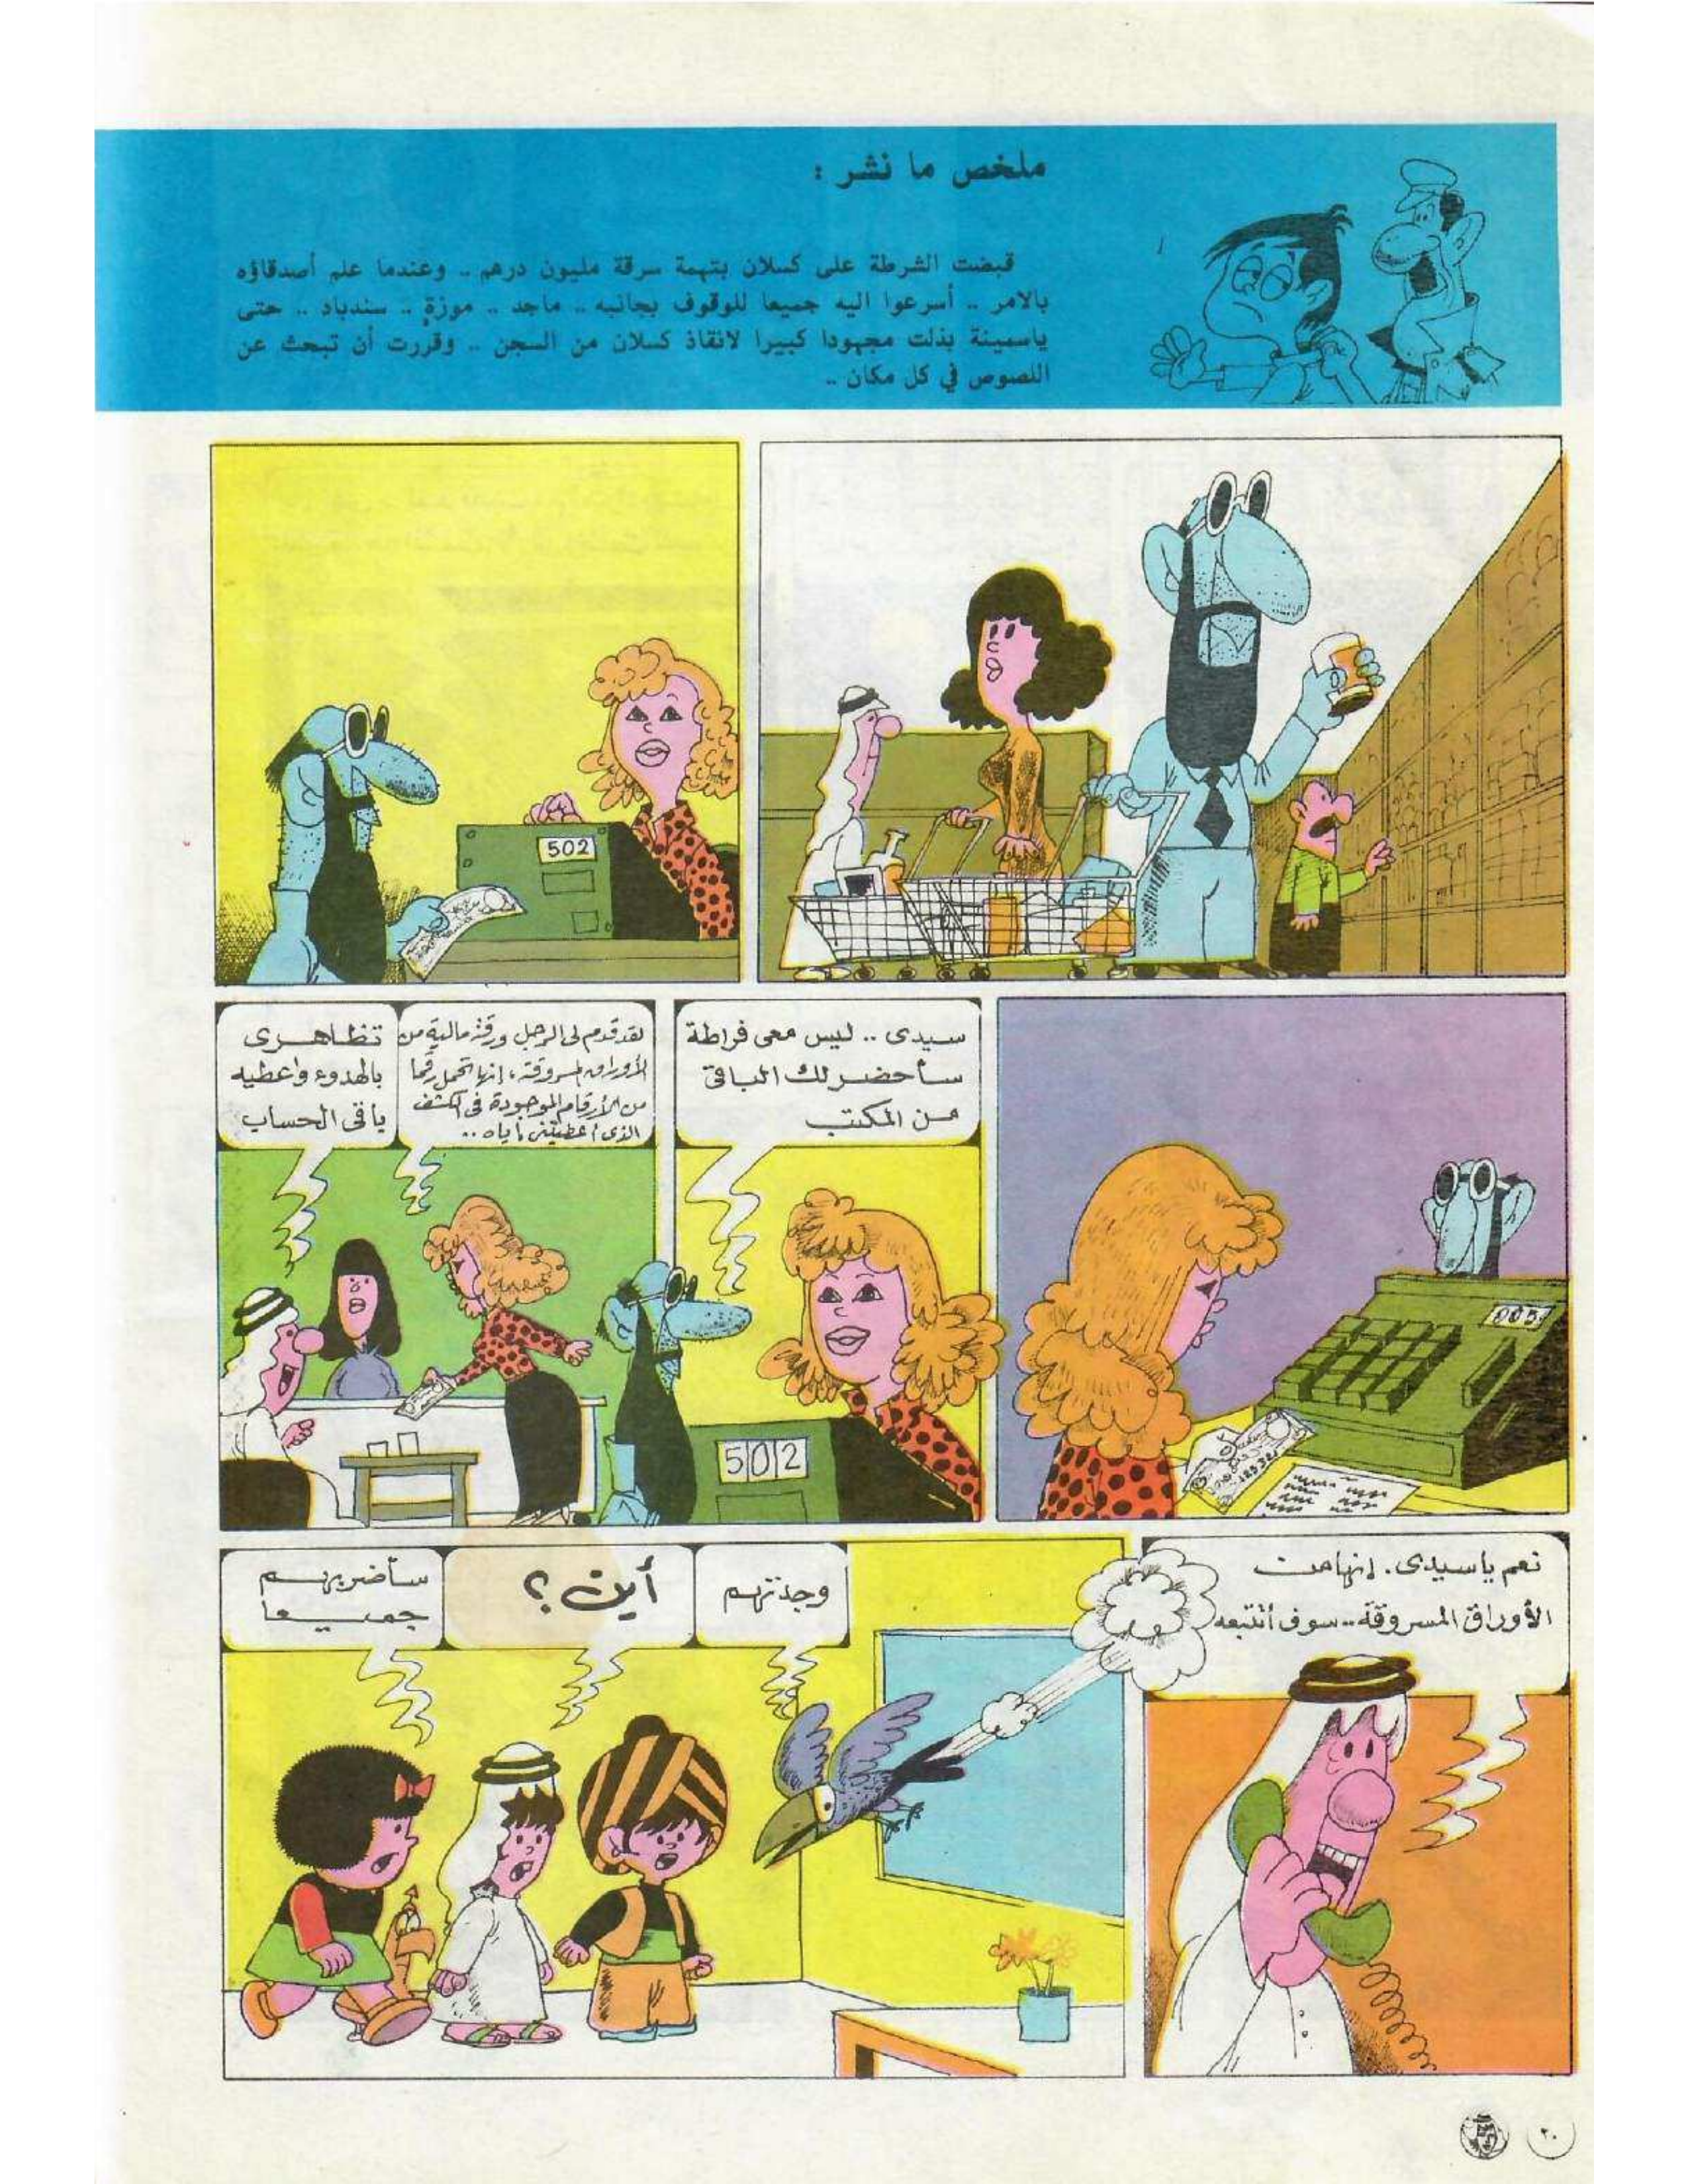 ملخص ما نشر :
قبضت الشرطة على كسلان بتهمة سرقة مليون درهم .. وعندما علم أصدقاؤه
بالامر .. أسرعوا اليه جميعا للوقوف بجانبه .. ماجد .. موزة .. سندباد .. حتى
ياسمينة بذلت مجهودا كبيرا لانقاذ كسلان من السجن .. وقررت أن تبحث عن
اللصوص في كل مكان ..
502
905
سيدى .. ليس معى فراطة
سأحضر لك الباقى
من المكتب
502
لقد قدم لى الرجل ورقة مالية من
الأوراق المسروقة ، إنها تحمل رقما
من الأرقام الموجودة فى الكشف
الذى أعطيتنى إياه ..
تظاهرى
بالهدوء واعطيه
باقى الحساب
نعم ياسيدى . إنها من
الأوراق المسروقة .. سوف أتتبعه
وجدتهم
أين ؟
سأضربهم
جميعا
٢٠